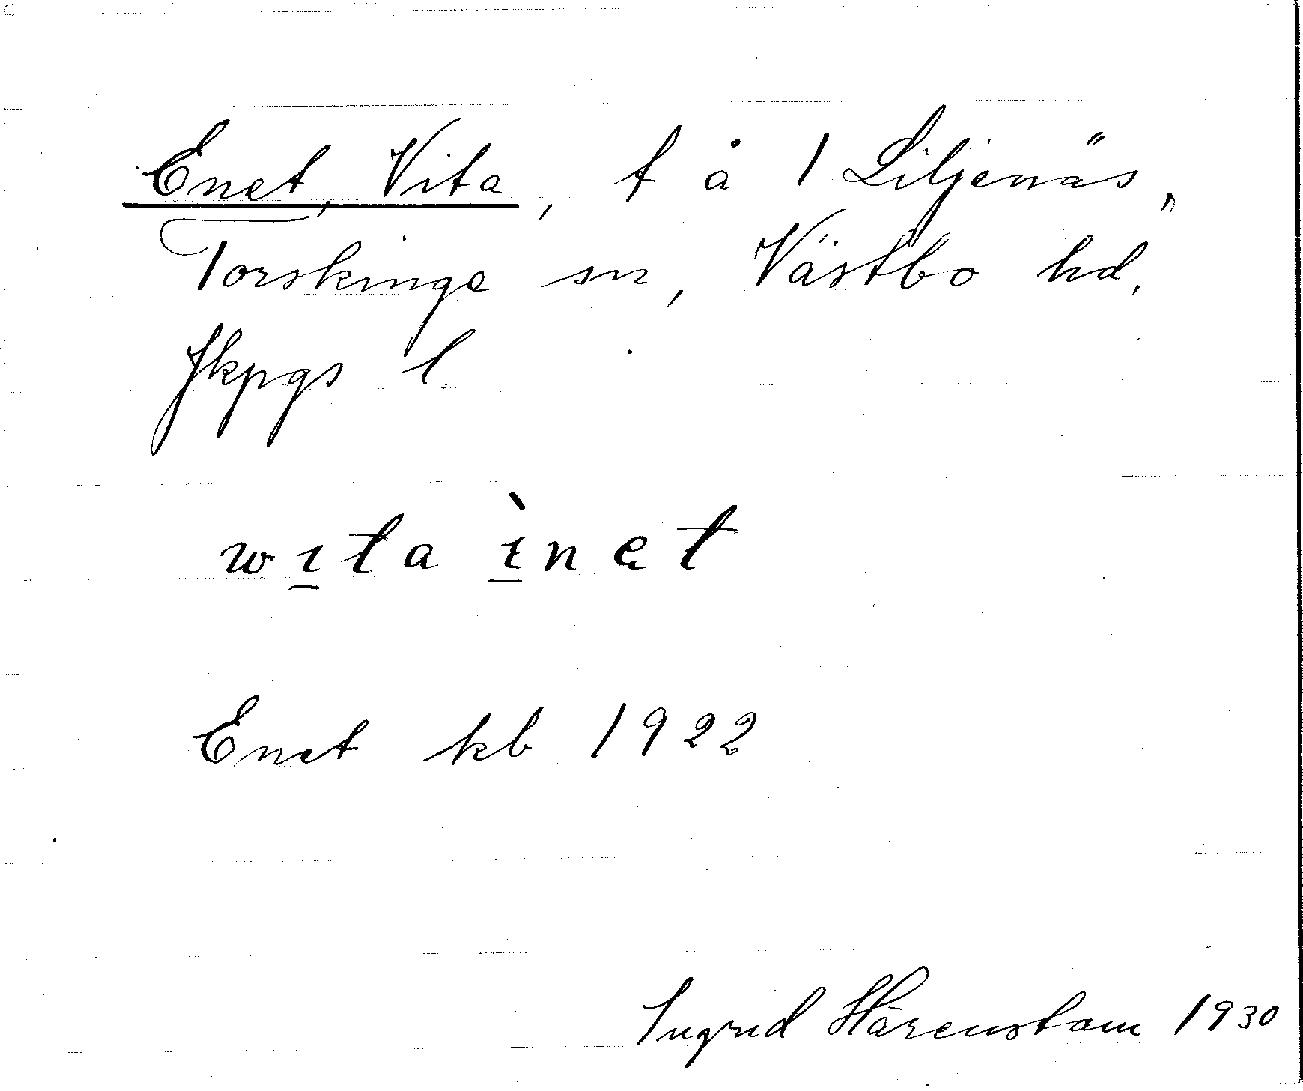 Enet, Vita, t å 1 Liljenäs,
Torskinge sn, Västbo hd,
Jkpgs l
wıta ìnet
Enet kb 1922
Ingrid Härenstam 1930